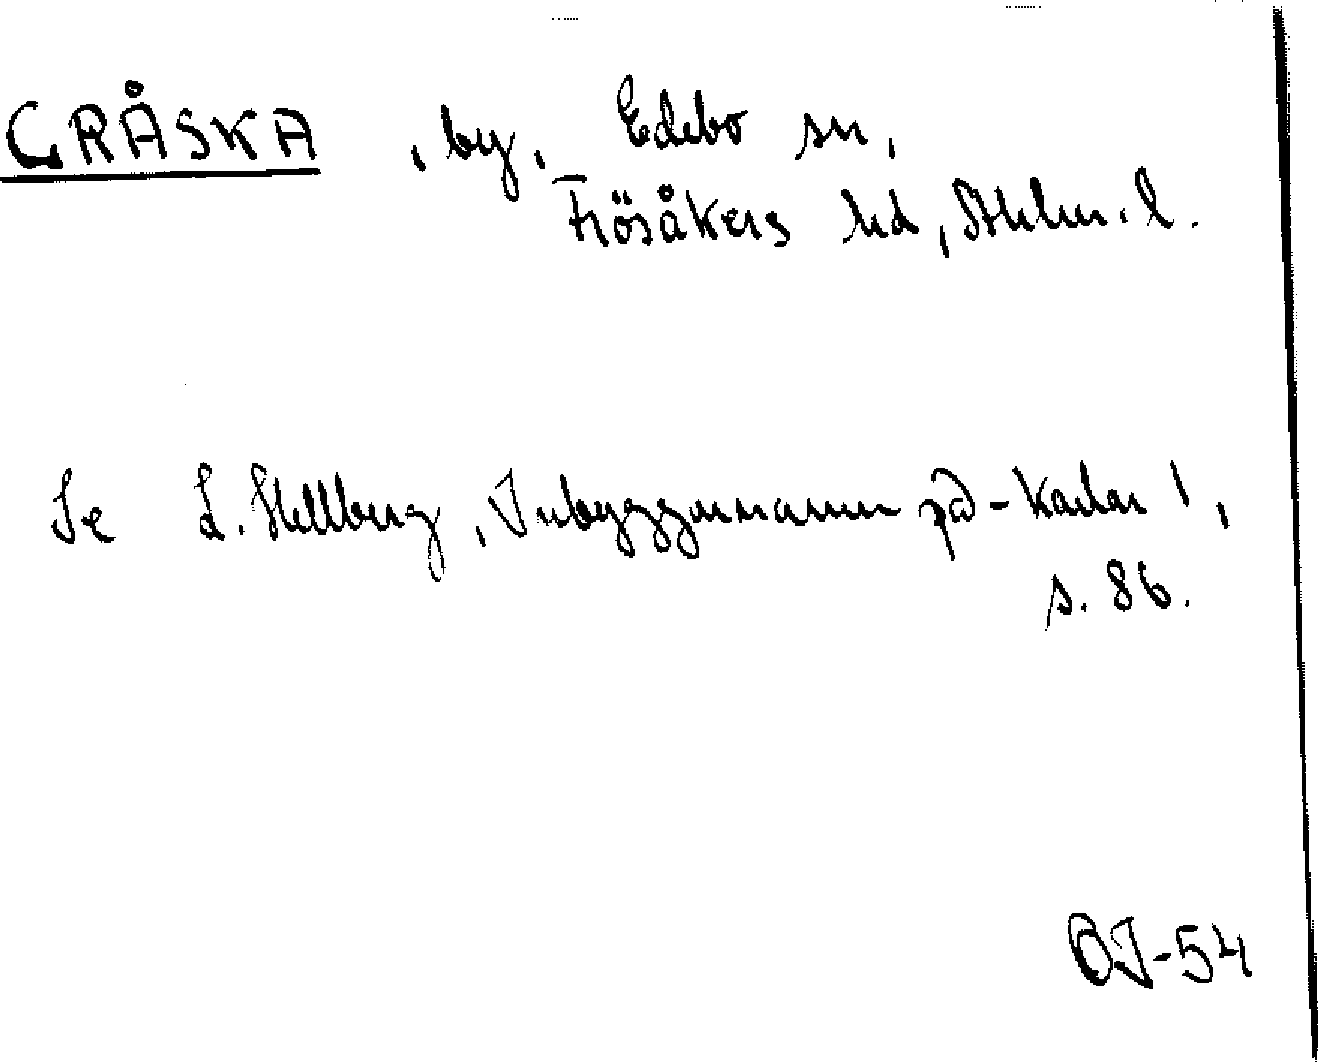 GRÅSKA, by, Edebo sn,
Frösåkers hd, Sthlm. l.
Se L. Hellberg, Inbyggarnamn på -karlar 1,
s. 86.
OJ-54